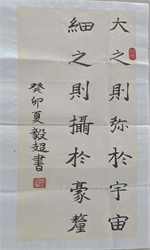 大之則弥於宇宙
細之則攝於豪釐
癸卯夏毅超書